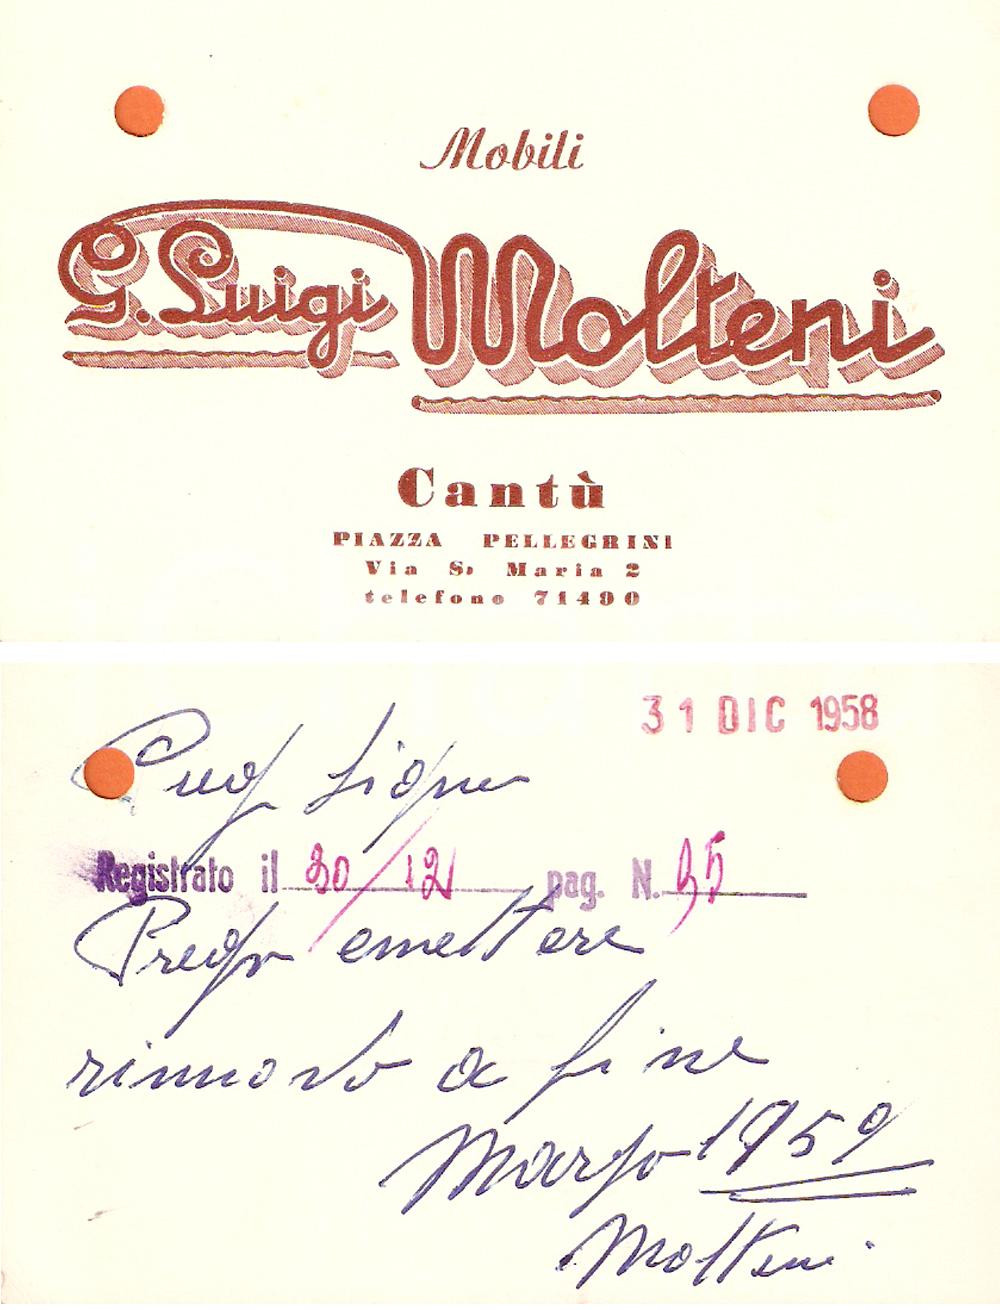 Mobili
G. Luigi Molteni
Cantù
PIAZZA PELLEGRINI
Via S. Maria 2
telefono 71490
31 DIC 1958
Preg Signor
Registrato il 30/12 pag. N. 95
Prego emettere
rinnovo a fine
Marzo 1959
Molteni